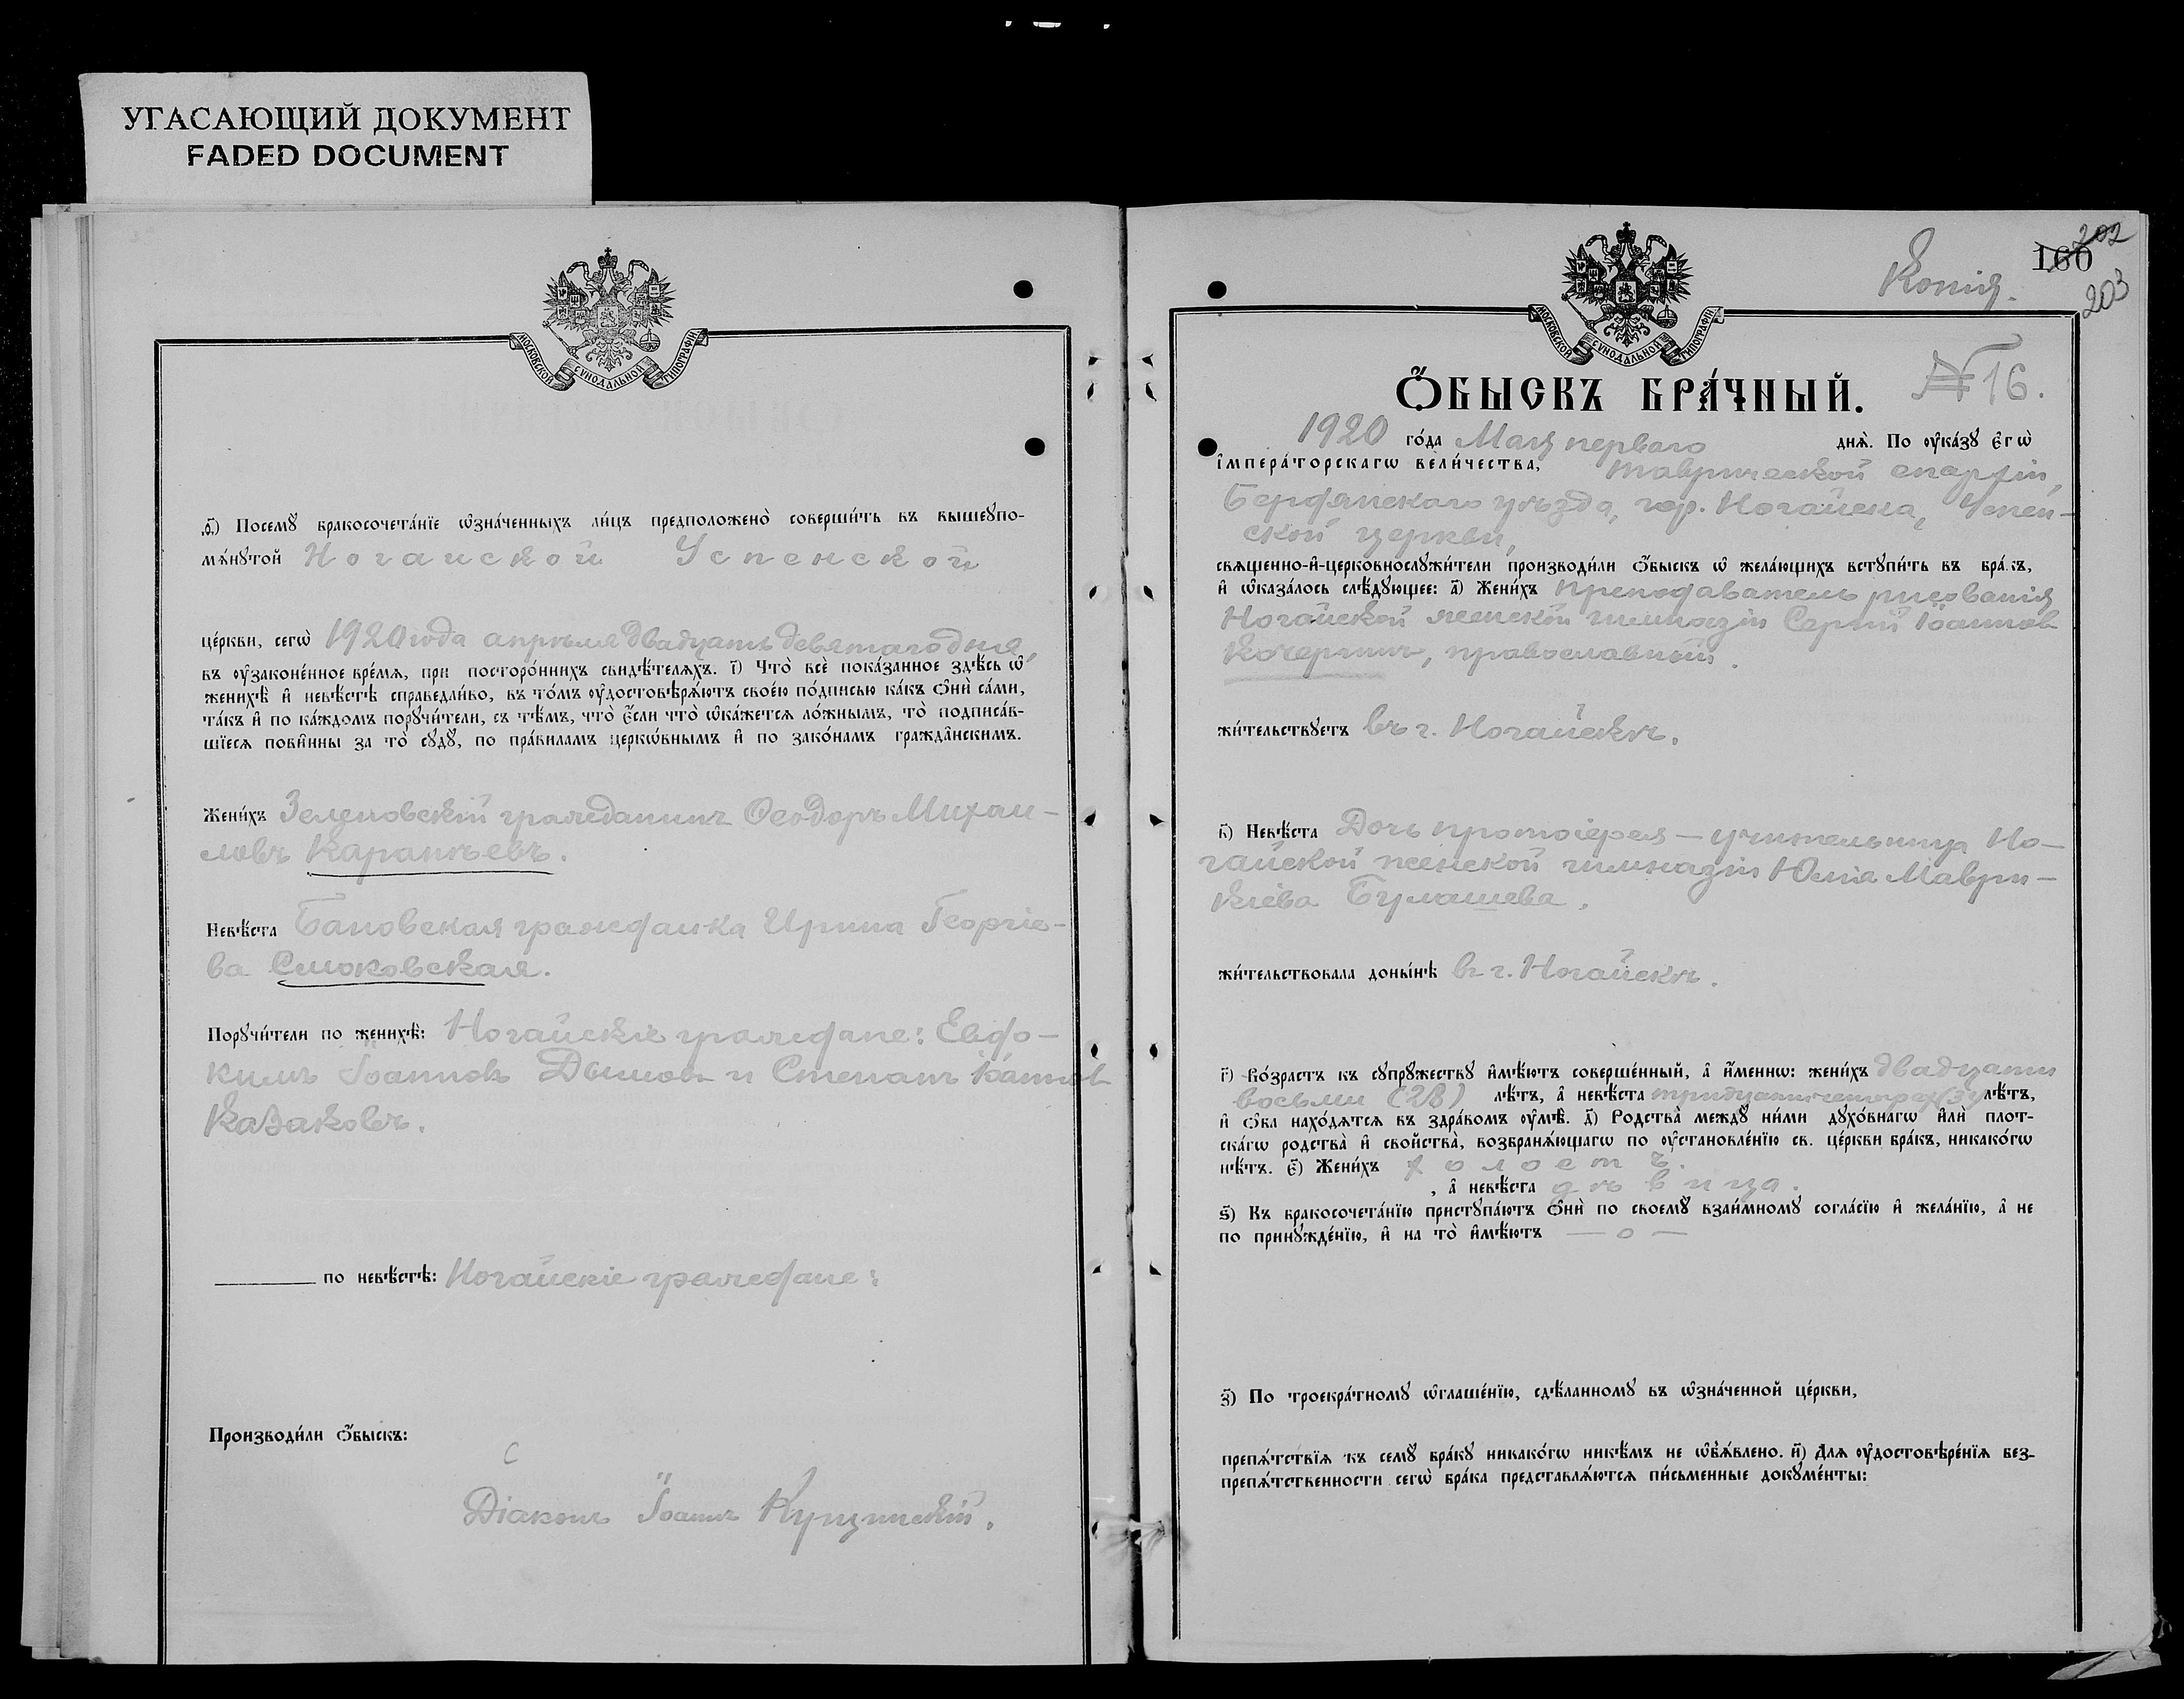 УГАСАЮЩИЙ ДОКУМЕНТ
FADED DOCUMENT
МОСКОВСКОЙ СѴНОДАЛЬНОЙ ТИПОГРАФІИ
ѳ҃) Посемꙋ̀ бракосочета́нїе ѡ҆зна́ченныхъ ли́цъ предположено̀ соверши́ть въ вышеꙋпо-
мѧ́нꙋтой Ногайской Успенской
це́ркви, сегѡ̀ 1920 года апрѣля двадцать девятаго дня,
въ ᲂу҆зако́ненное вре́мѧ, при посторо́ннихъ свидѣ́телѧхъ. і҃) Что̀ всѐ пока́занное здѣ́сь ѡ҆
женихѣ̀ и҆ невѣ́стѣ справедли́во, въ то́мъ ᲂу҆достовѣрѧ́ютъ свое́ю по́дписью ка́къ ѻ҆нѝ са́ми,
та́къ и҆ по ка́ждомъ порꙋчи́тели, съ тѣ́мъ, что̀ є҆́сли что̀ ѡ҆ка́жетсѧ ло́жнымъ, то̀ подписа́в-
шїесѧ пови́нны за то̀ сꙋдꙋ̀, по пра́виламъ церко́внымъ и҆ по зако́намъ гражда́нскимъ.
Жени́хъ Зеленовскій гражданинъ Ѳеодоръ Михаи-
ловъ Каранѣевъ.
Невѣ́ста Бановская гражданка Ирина Георгіе-
ва Смоковская.
Порꙋчи́тели по женихѣ̀: Ногайскіе граждане: Евдо-
кимъ Іоанновъ Дымовъ и Степанъ
Казаковъ.
по невѣ́стѣ: Ногайскіе граждане:
Производи́ли ѻ҆́быскъ:
С
Діаконъ Іоаннъ Кущинскій.
Копія.
160 202
203
МОСКОВСКОЙ СѴНОДАЛЬНОЙ ТИПОГРАФІИ
Ѻ҆́БЫСКЪ БРА́ЧНЫЙ. № 16.
1920 го́да Мая перваго днѧ̀. По ᲂу҆ка́зꙋ є҆гѡ̀
і҆мпера́торскагѡ вели́чества, Таврической епархіи,
Бердянскаго уѣзда, гор. Ногайска, Успен-
ской церкви,
свѧще́нно-и҆-церковнослꙋжи́тели производи́ли ѻ҆́быскъ ѡ҆ жела́ющихъ встꙋпи́ть въ бра́къ,
и҆ ѡ҆каза́лось слѣ́дꙋющее: а҃) Жени́хъ преподаватель рисованія
Ногайской женской гимназіи Сергій Іоанновъ
Кочергинъ, православный.
жи́тельствꙋетъ въ г. Ногайскѣ.
в҃) Невѣ́ста Дочь протоіерея – учительница Но-
гайской женской гимназіи Юлія Маври-
кіева Булашева.
жи́тельствовала доны́нѣ въ г. Ногайскѣ.
г҃) Во́зрастъ къ сꙋпрꙋ́жествꙋ и҆мѣ́ютъ соверше́нный, а҆ и҆́меннѡ: жени́хъ двадцати
восьми (28) лѣ́тъ, а҆ невѣ́ста тридцати четырех (34) лѣ́тъ,
и҆ ѻ҆́ба нахо́дѧтсѧ въ здра́вомъ ᲂу҆мѣ̀. д҃) Родства̀ междꙋ ни́ми дꙋхо́внагѡ и҆лѝ плот-
ска́гѡ родства̀ и҆ сво́йства, возбранѧ́ющагѡ по ᲂу҆становле́нїю св. це́ркви бра́къ, никако́гѡ
нѣ́тъ. є҃) Жени́хъ холостъ.
, а҆ невѣ́ста дѣвица.
ѕ҃) Къ бракосочета́нїю пристꙋпа́ютъ ѻ҆нѝ по своемꙋ̀ взаи́мномꙋ согла́сїю и҆ жела́нїю, а҆ не
по принꙋжде́нїю, и҆ на то̀ и҆мѣ́ютъ — о —
з҃) По троекра́тномꙋ ѡ҆глаше́нїю, сдѣ́ланномꙋ въ ѡ҆зна́ченной це́ркви,
препѧ́тствїѧ къ семꙋ̀ бра́кꙋ никако́гѡ никѣ́мъ не ѡ҆б̾ѧ́влено. и҃) Для ᲂу҆достовѣре́нїѧ без-
препѧ́тственности сегѡ̀ бра́ка представлѧ́ютсѧ пи́сьменные докꙋме́нты: